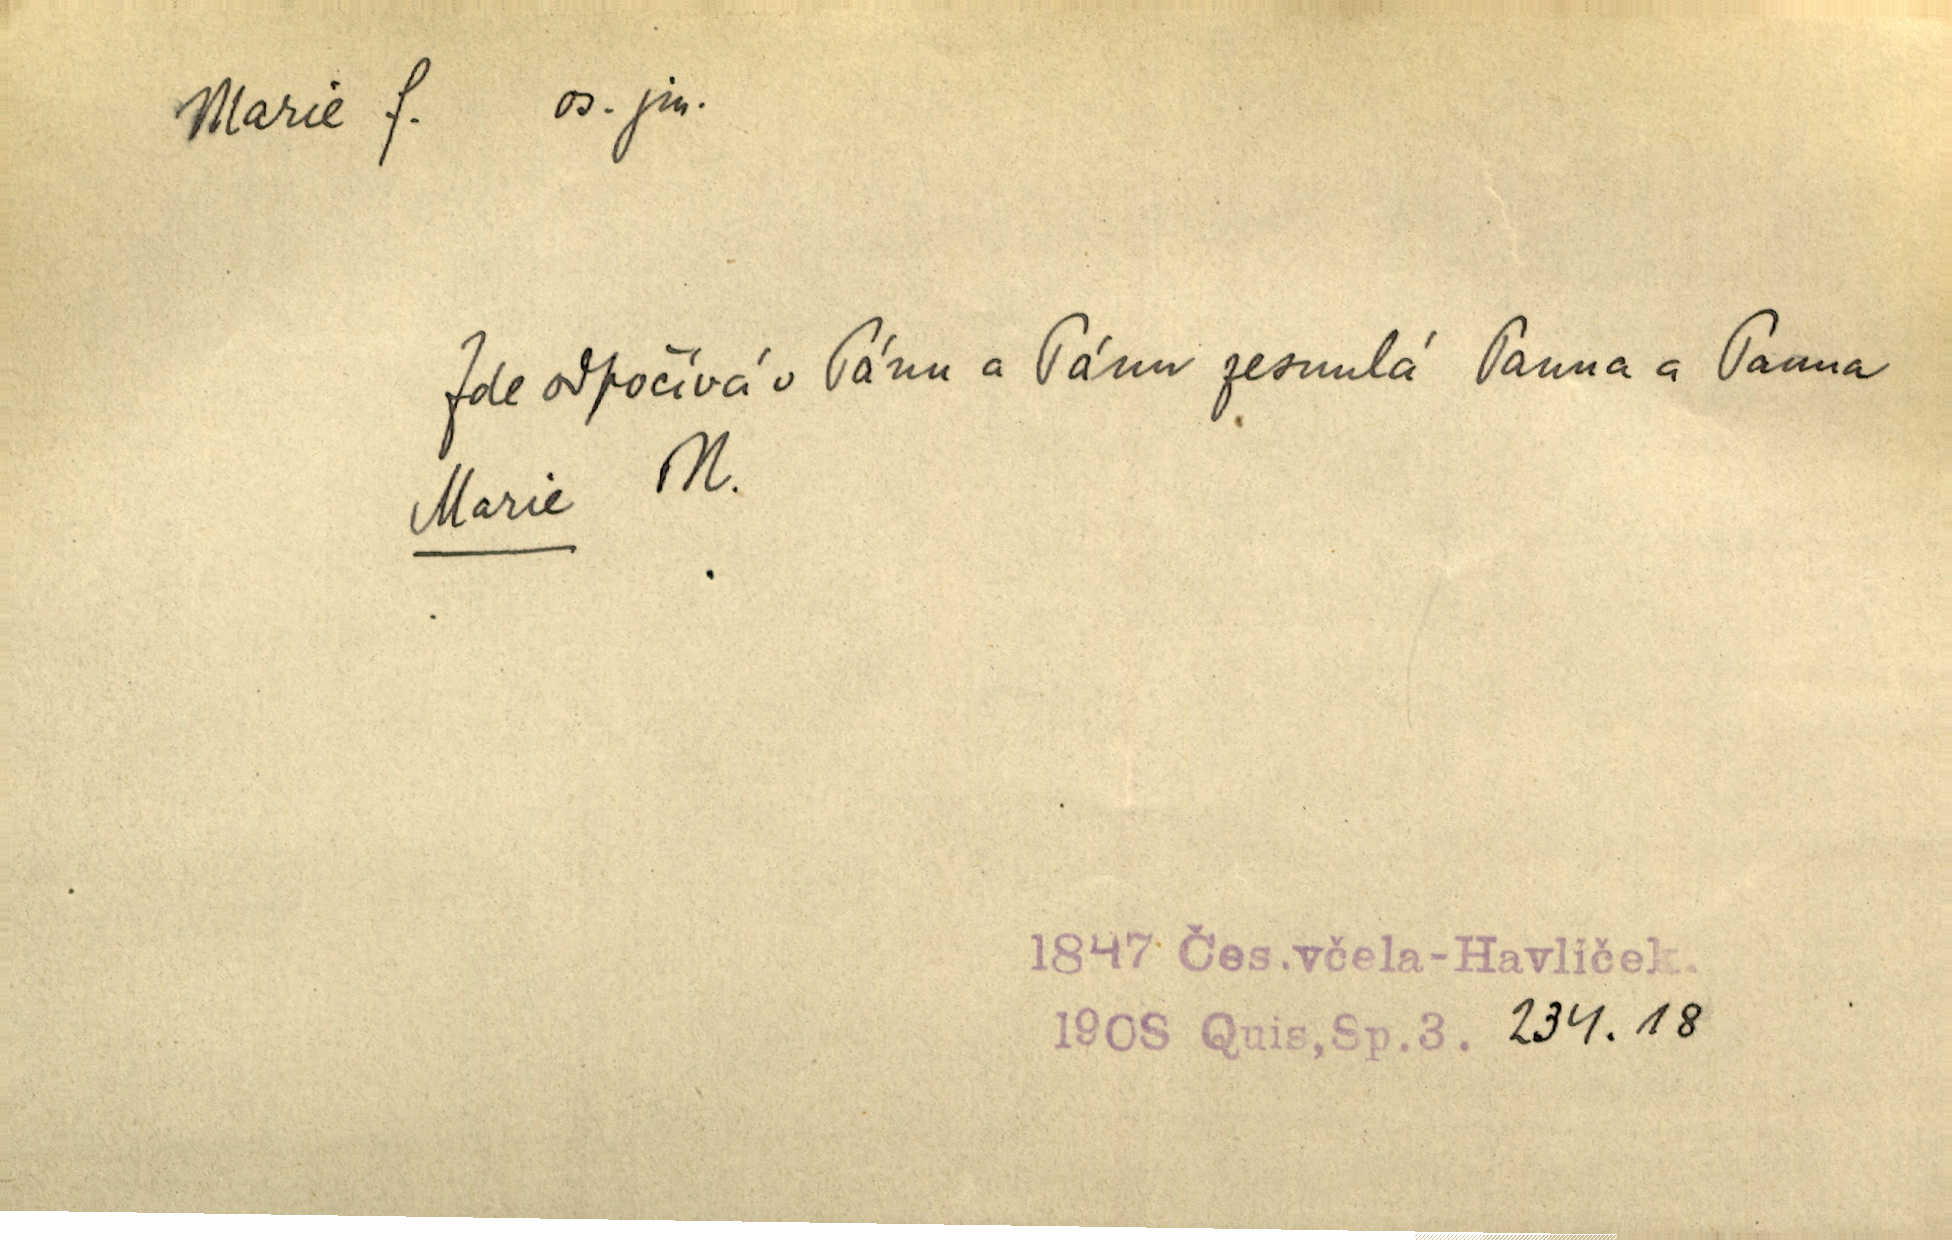 Marie f. os. jm.
Zde odpočívá v Pánu a Pánu zesnulá Panna a Panna
Marie N.
1847 Čes.včela-Havlíček.
1908 Quis,Sp.3. 234.18